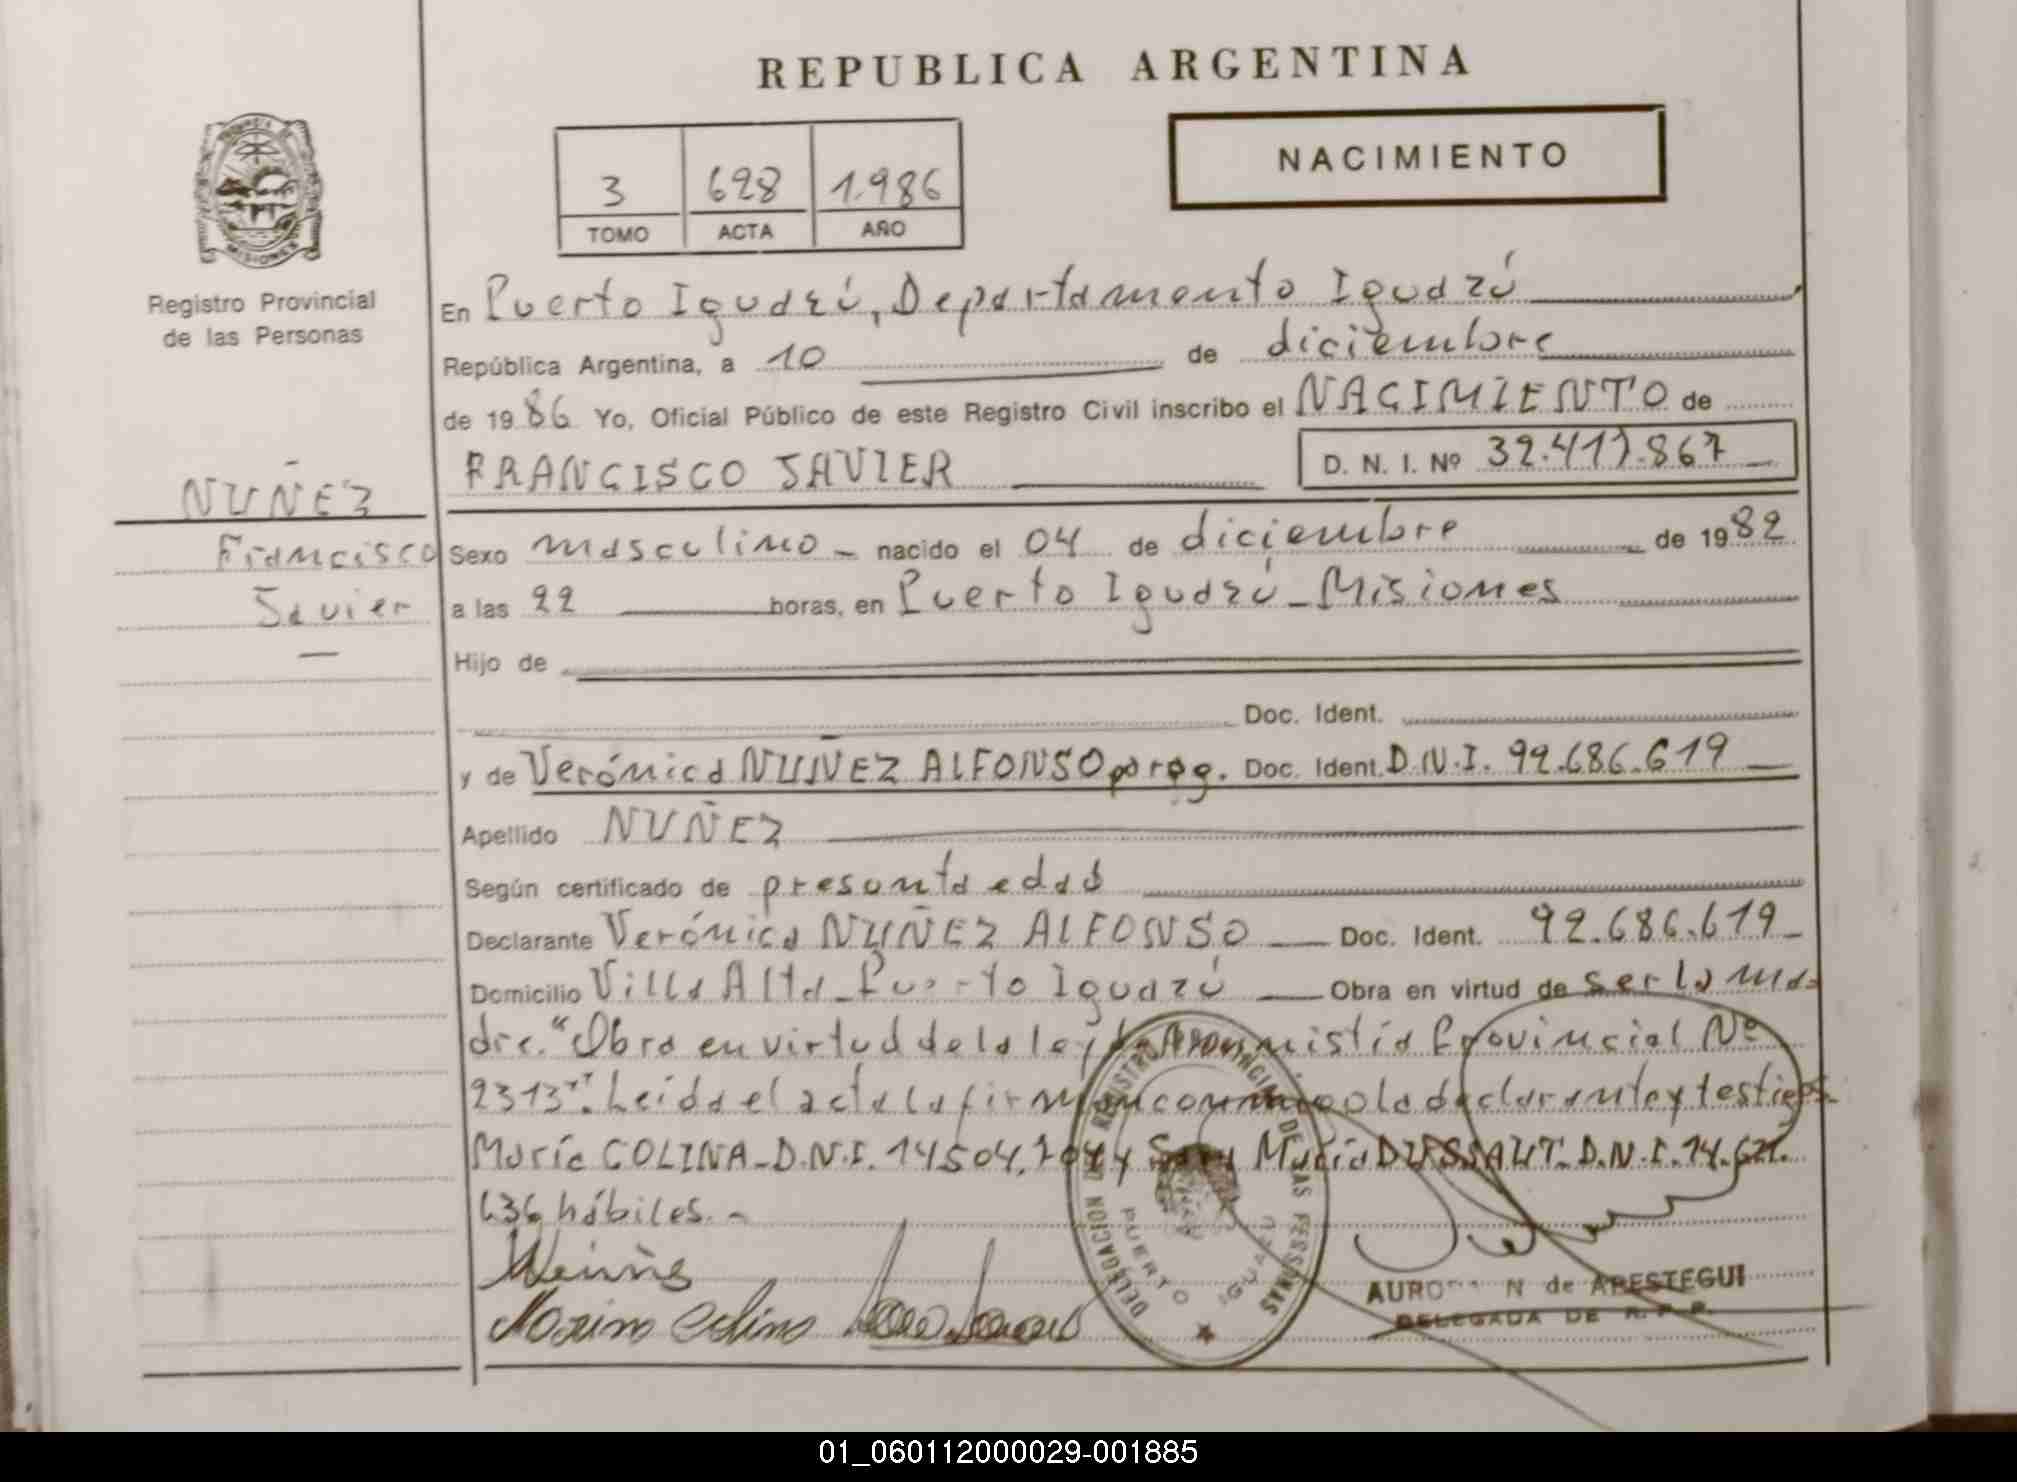 REPUBLICA ARGENTINA
NACIMIENTO
3 628 1.986
TOMO ACTA AÑO
PROVINCIA DE MISIONES
Registro Provincial
de las Personas
En Puerto Iguazú, Departamento Iguazú
República Argentina, a 10 de diciembre
de 1986 Yo, Oficial Público de este Registro Civil inscribo el NACIMIENTO de
FRANCISCO JAVIER D. N. I. Nº 32.417.867
NUÑEZ
Francisco
Javier
Sexo masculino nacido el 04 de diciembre de 1982
a las 22 horas, en Puerto Iguazú - Misiones
Hijo de
Doc. Ident.
y de Verónica NUÑEZ ALFONSO parag. Doc. Ident. D.N.I. 92.686.619
Apellido NUÑEZ
Según certificado de presunta edad
Declarante Verónica NUÑEZ ALFONSO Doc. Ident. 92.686.619
Domicilio Villa Alta - Puerto Iguazú Obra en virtud de ser la ma-
dre. "Obra en virtud de la ley de Amnistía Provincial Nº
2313". Leida el acta la firman conmigo la declarante y testigos
María COLINA - D.N.I. 14504. y María DUSSAUT. D.N.I. 14.621.
636 hábiles. -
DELEGACION DEL REGISTRO PROVINCIAL DE LAS PERSONAS
PUERTO IGUAZU
N de ARESTEGUI
DELEGADA DE R.P.P.
01_060112000029-001885